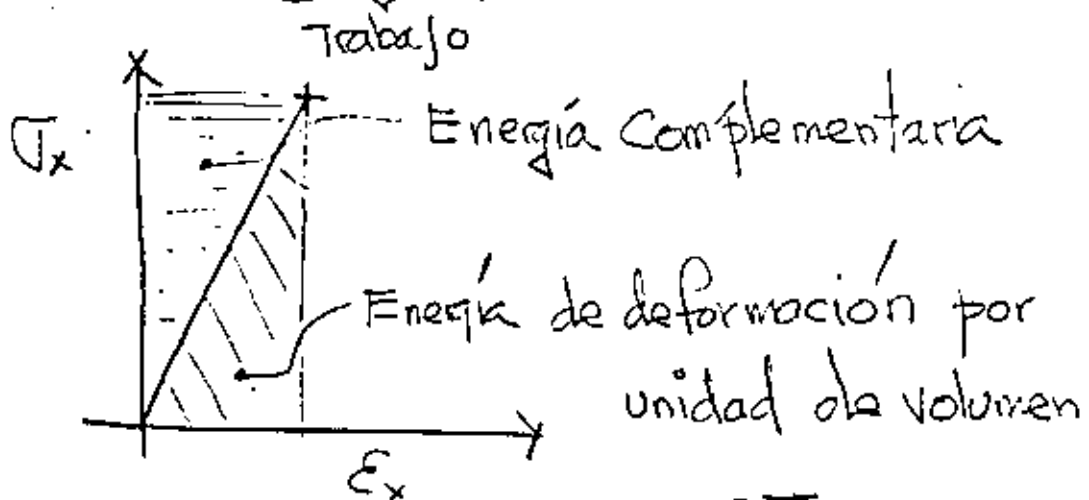 Trabajo
σx
Energía Complementaria
Energía de deformación por
unidad de volumen
εx